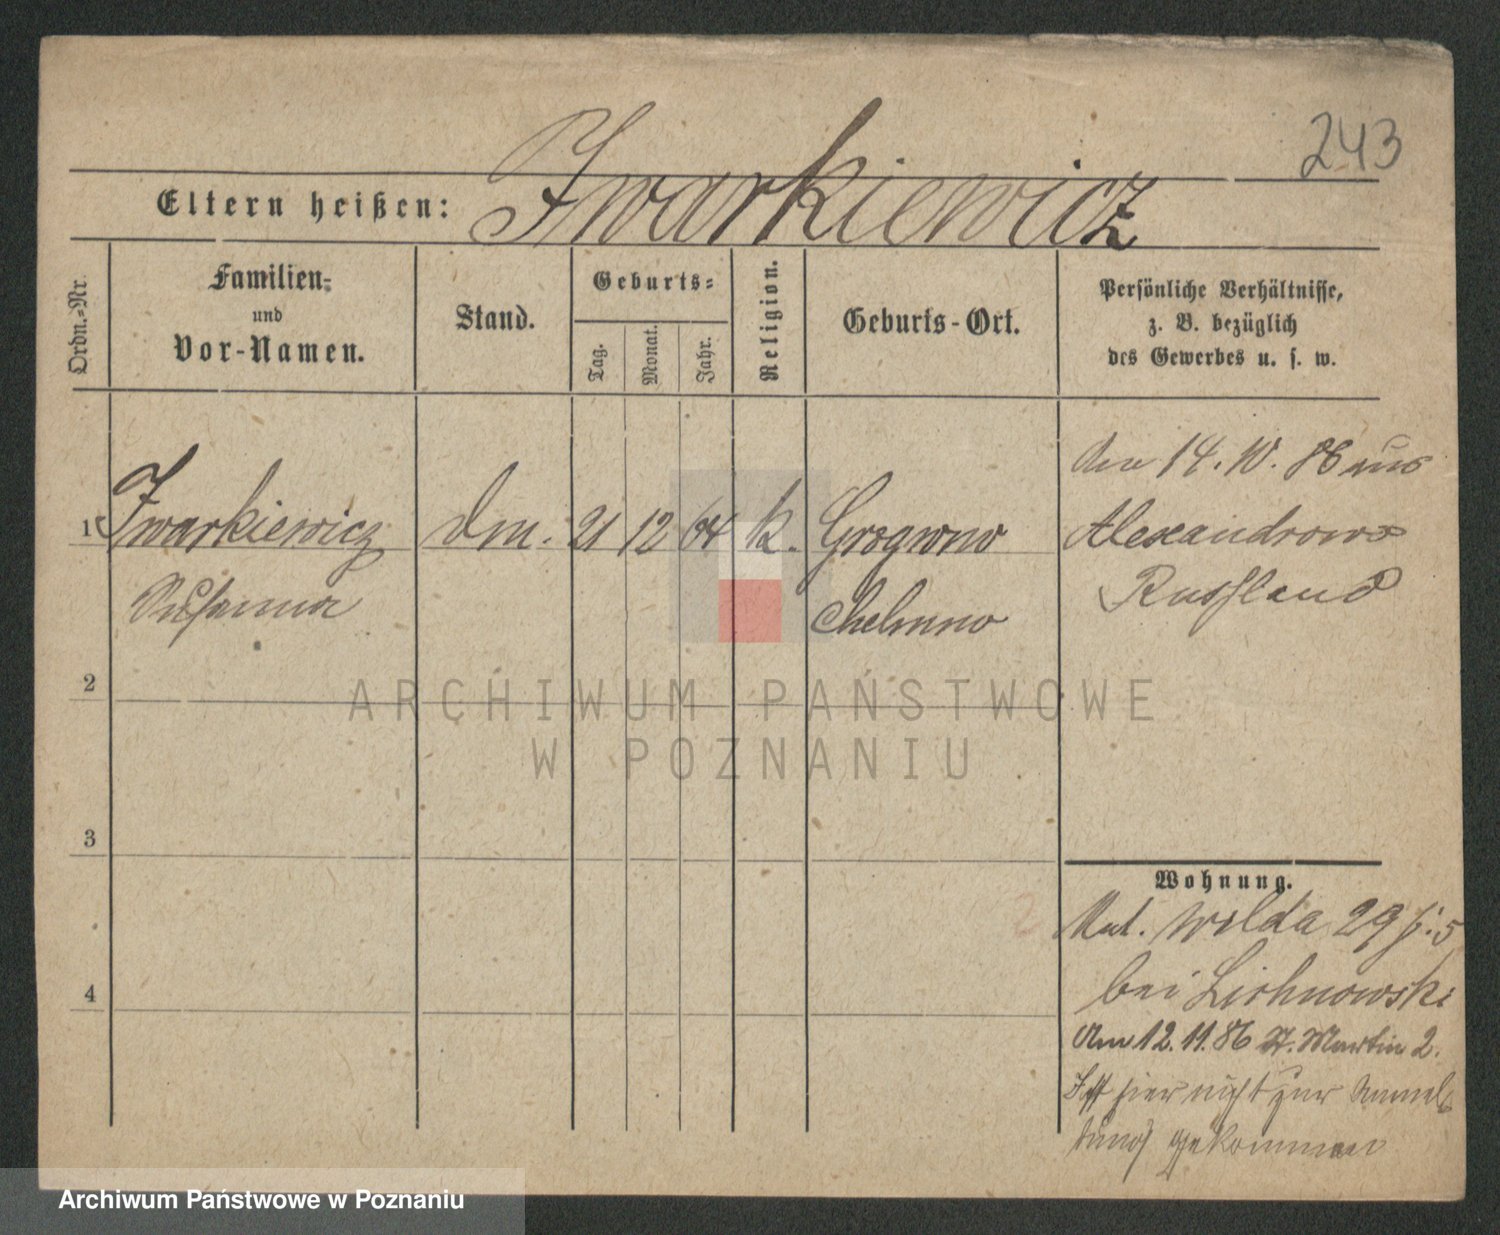 243
Eltern heißen: Iwarkiewicz
Ordn.-Nr.
Familien-
und
Vor-Namen.
Stand.
Geburts-
Tag.
Monat.
Jahr.
Religion.
Geburts-Ort.
Persönliche Verhältnisse,
z. B. bezüglich
des Gewerbes u. s. w.
1 Iwarkiewicz dm. 21 12 64 k.
Susanna
Chelmno
14. 10. 86 aus
Alexandrowo
Russland
2
3
4
Wohnung.
Unt. Wilda 29
bei Lichnowski
Am 12.11.86 St. Martin 2.
Ist hier nicht zur Anmel-
dung gekommen
ARCHIWUM PAŃSTWOWE
W POZNANIU
Archiwum Państwowe w Poznaniu